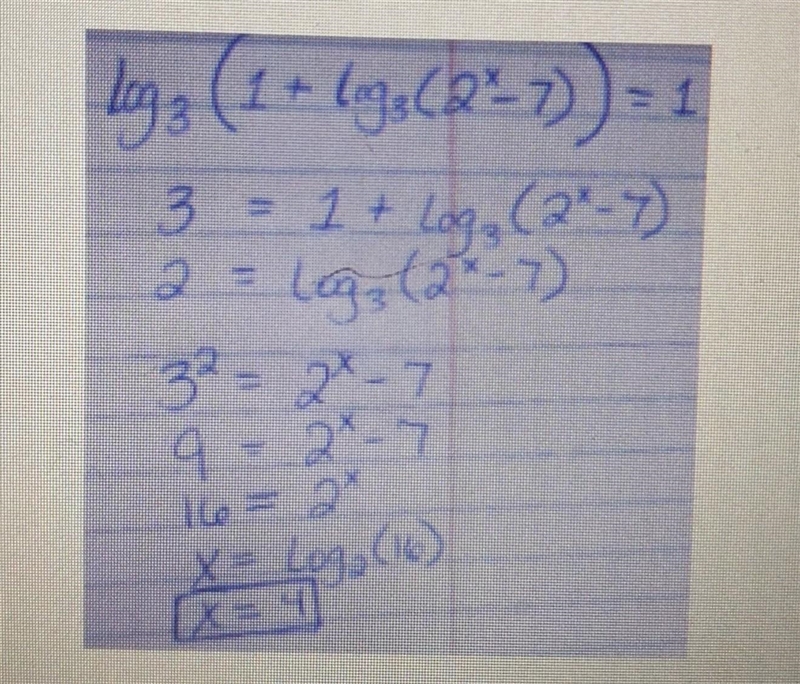 log₃(1 + log₃(2ˣ - 7)) = 1
3 = 1 + log₃(2ˣ - 7)
2 = log₃(2ˣ - 7)
3² = 2ˣ - 7
9 = 2ˣ - 7
16 = 2ˣ
x = log₂(16)
x = 4